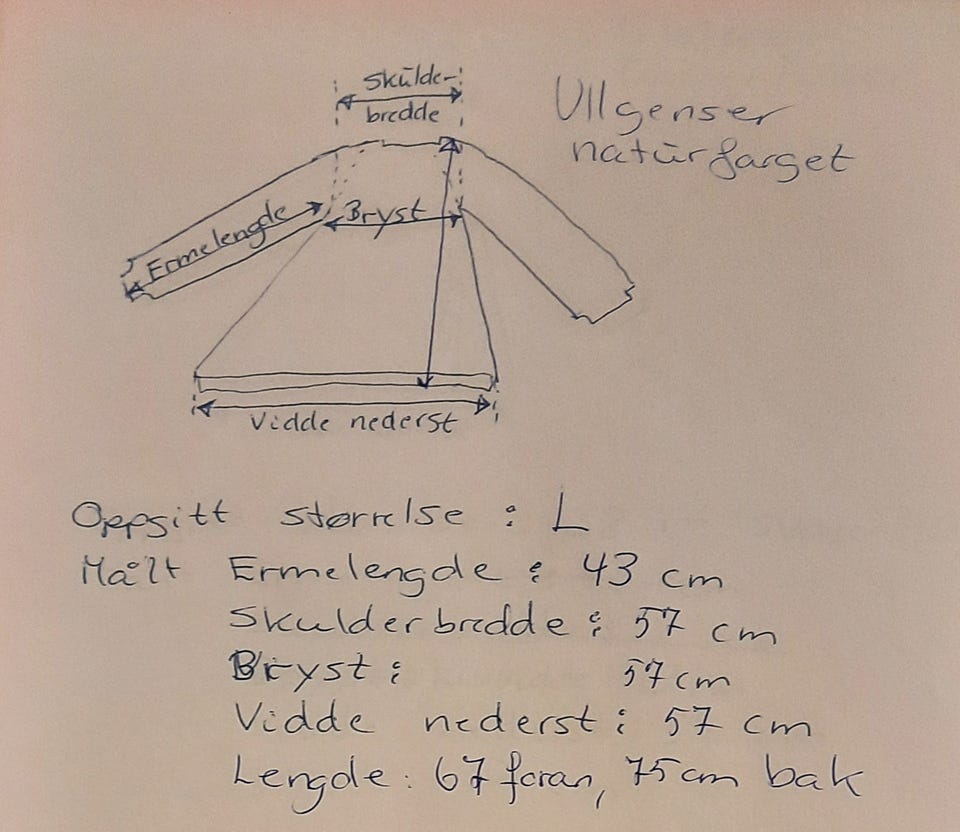 Skulde-
bredde
Ullgenser
naturfarget
Ermelengde
Bryst
Vidde nederst
Oppgitt størrelse : L
Målt Ermelengde : 43 cm
Skulderbredde : 57 cm
Bryst : 57 cm
Vidde nederst : 57 cm
Lengde : 67 foran, 75 cm bak